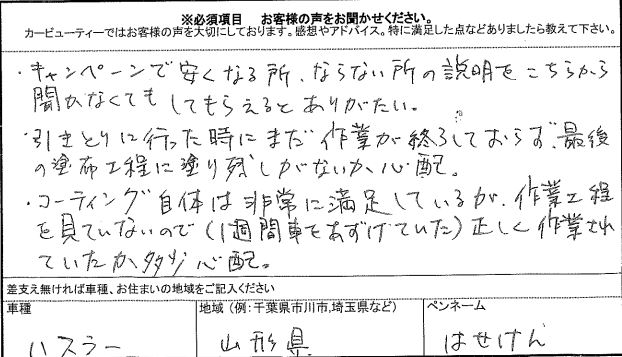 ※必須項目　お客様の声をお聞かせください。
カービューティーではお客様の声を大切にしております。感想やアドバイス。特に満足した点などありましたら教えて下さい。
・キャンペーンで安くなる所、ならない所の説明をこちらから
聞かなくてもしてもらえるとありがたい。
・引きとりに行った時にまだ作業が終了しておらず、最後
の塗布工程に塗り残しがないか心配。
・コーティング自体は非常に満足しているが、作業工程
を見ていないので(1週間車をあずけていた)正しく作業され
ていたか多少心配。
差支え無ければ車種、お住まいの地域をご記入ください
車種　地域（例:千葉県市川市,埼玉県など）　ペンネーム
ハスラー　山形県　はせけん